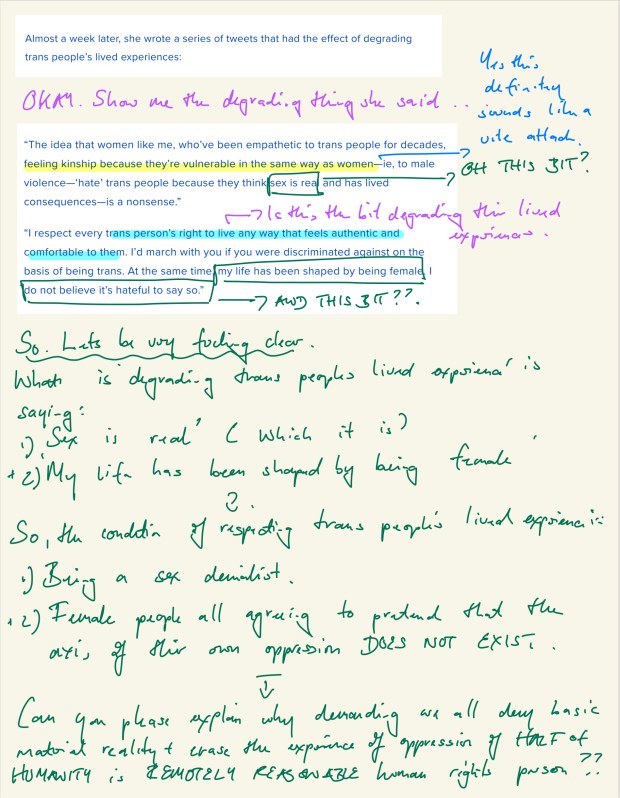 Almost a week later, she wrote a series of tweets that had the effect of degrading
trans people's lived experiences:
OKAY. Show me the degrading thing she said ..
Yes this
definitely
sounds like a
vile attack.
"The idea that women like me, who've been empathetic to trans people for decades,
feeling kinship because they're vulnerable in the same way as women—ie, to male
violence—'hate' trans people because they think sex is real and has lived
consequences—is a nonsense."
OH THIS BIT?
Is this the bit degrading their lived
experiences.
"I respect every trans person's right to live any way that feels authentic and
comfortable to them. I'd march with you if you were discriminated against on the
basis of being trans. At the same time, my life has been shaped by being female. I
do not believe it's hateful to say so."
AND THIS BIT??.
So. Lets be very fucking clear.
What is 'degrading trans peoples lived experience' is
saying:
1) 'Sex is real' (which it is)
+ 2) 'My life has been shaped by being female'
?
So, the condition of respecting trans people's lived experience is:
1) Being a sex denialist.
+ 2) Female people all agreeing to pretend that the
axis of their own oppression DOES NOT EXIST.
Can you please explain why demanding we all deny basic
material reality + erase the experience of oppression of HALF of
HUMANITY is REMOTELY REASONABLE human rights ??